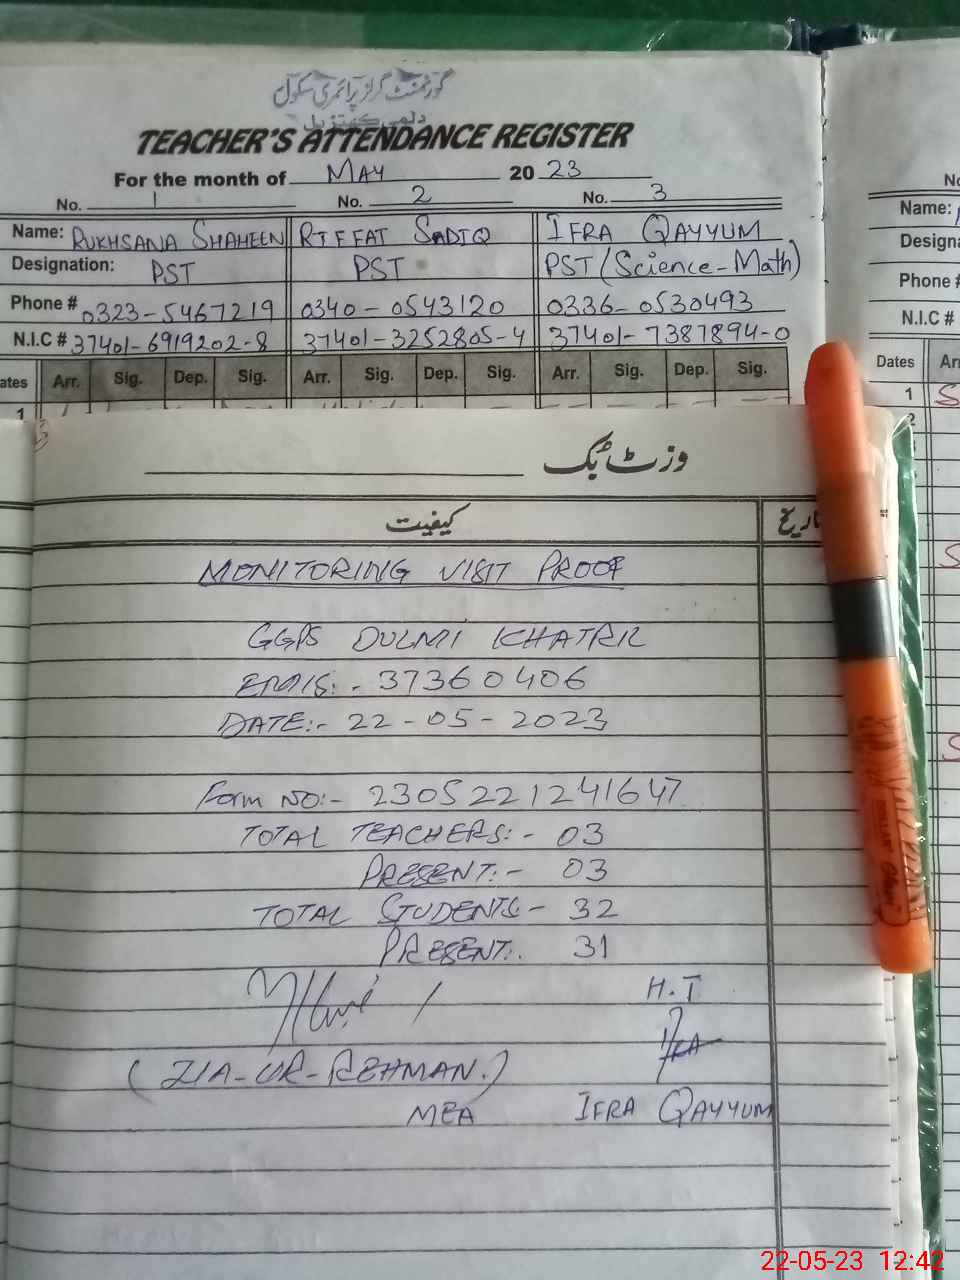 گورنمنٹ گرلز پرائمری سکول
دلمی کھتریل
TEACHER'S ATTENDANCE REGISTER
For the month of MAY 20 23
No. 1 No. 2 No. 3
Name: RUKHSANA SHAHEEN RIFFAT SADIQ IFRA QAYYUM
Designation: PST PST PST (Science-Math)
Phone # 0323-5467219 0340-0543120 0336-0530493
N.I.C # 37401-6919202-8 37401-3252805-4 37401-7387894-0
ates Arr. Sig. Dep. Sig. Arr. Sig. Dep. Sig. Arr. Sig. Dep. Sig.
1
No
Name:
Design
Phone #
N.I.C #
Dates Arr
1 S
2
S
S
وزٹ بک
کیفیت تاریخ
MONITORING VISIT PROOF
GGPS DULMI KHATRIL
EMIS:- 37360406
DATE:- 22-05-2023
Form NO:- 2305221241647
TOTAL TEACHERS:- 03
PRESENT:- 03
TOTAL STUDENTS:- 32
PRESENT:. 31
H.T
Ifra
(ZIA-UR-REHMAN.)
MEA IFRA QAYYUM
22-05-23 12:42